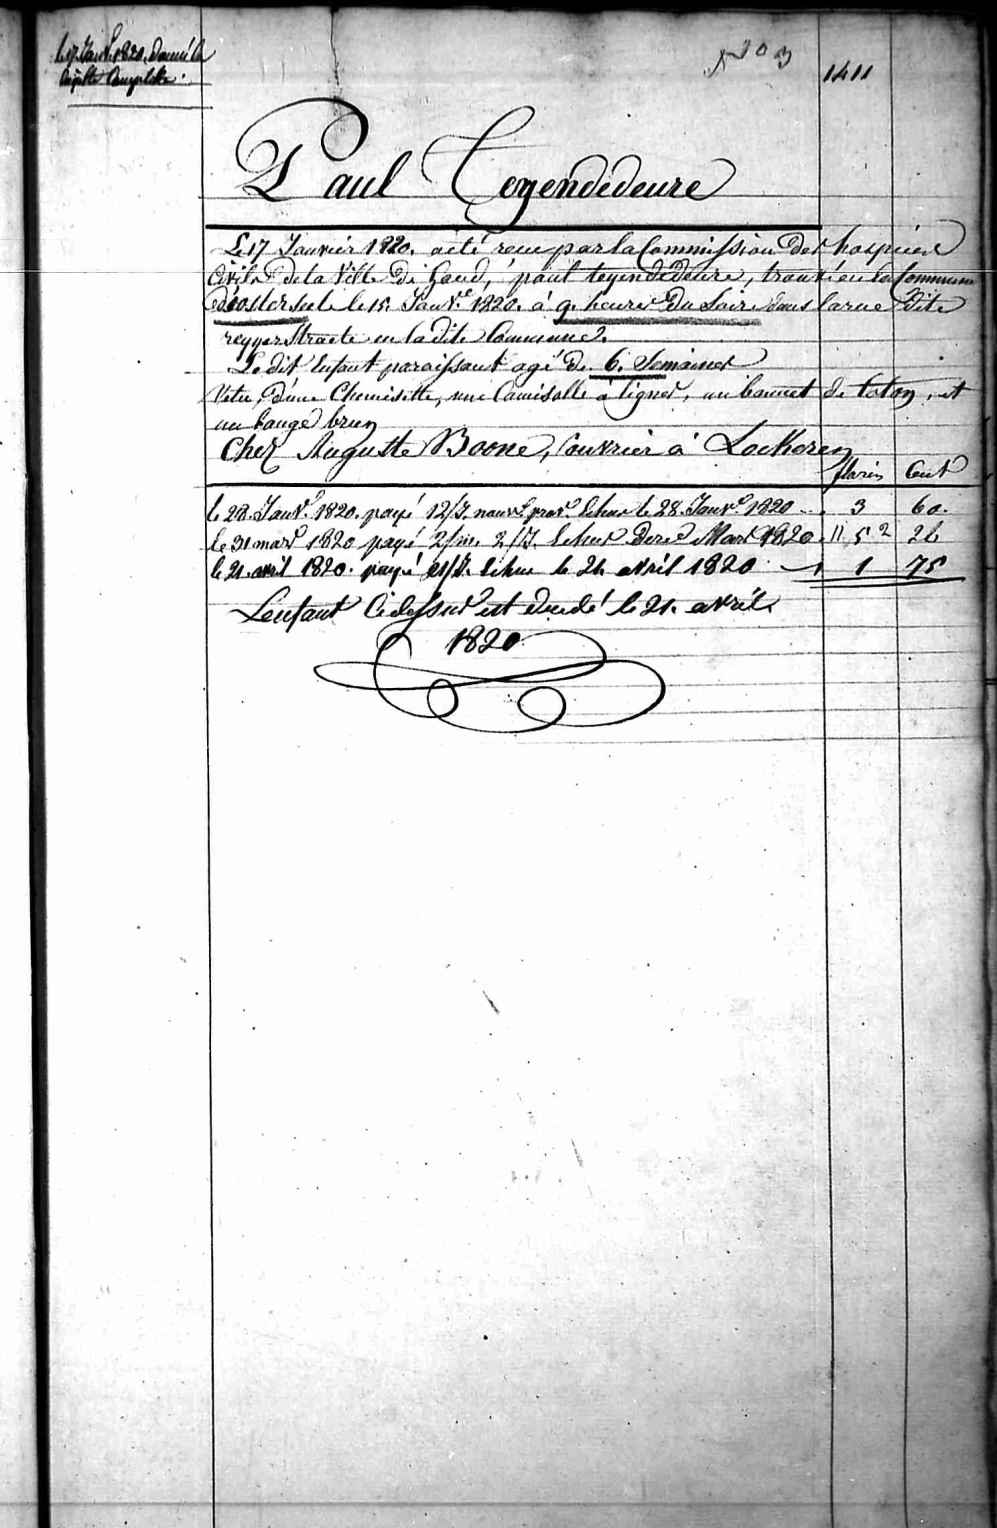 le 17 Janv.r 1820. donné la
layette Complette.
N.o 3
1411
Paul Tegendedeure
Le 17 Janvier 1820. a été recu par la Commission des hospices
Civils de la Ville de Gand, paul tegendedeure, trouvé en la Commune
d'éosterseel le 15. Janv.r 1820. à 9. heures du Soir dans la rue dite
reyger Straete en la dite Commune.
Le dit Enfant paraissant agé de 6. Semaines
Vetu d'une Chemisette, une Camisolle à lignes, un bonnet de Coton, et
un Lange brun
Chez Auguste Boone, Ouvrier à Lockeren
florins Cents
le 28. Janv.r 1820. payé 12/J. nour.e prov.e échus le 28. Janv.r 1820 3 60.
le 31 mars 1820 payé 2/m. 2/J. échus dered Mars 1820. 5 26
le 21. avril 1820. payé 21/J. échus le 21 avril 1820 1 75
L'enfant Cidessus est décédé le 21. avril
1820